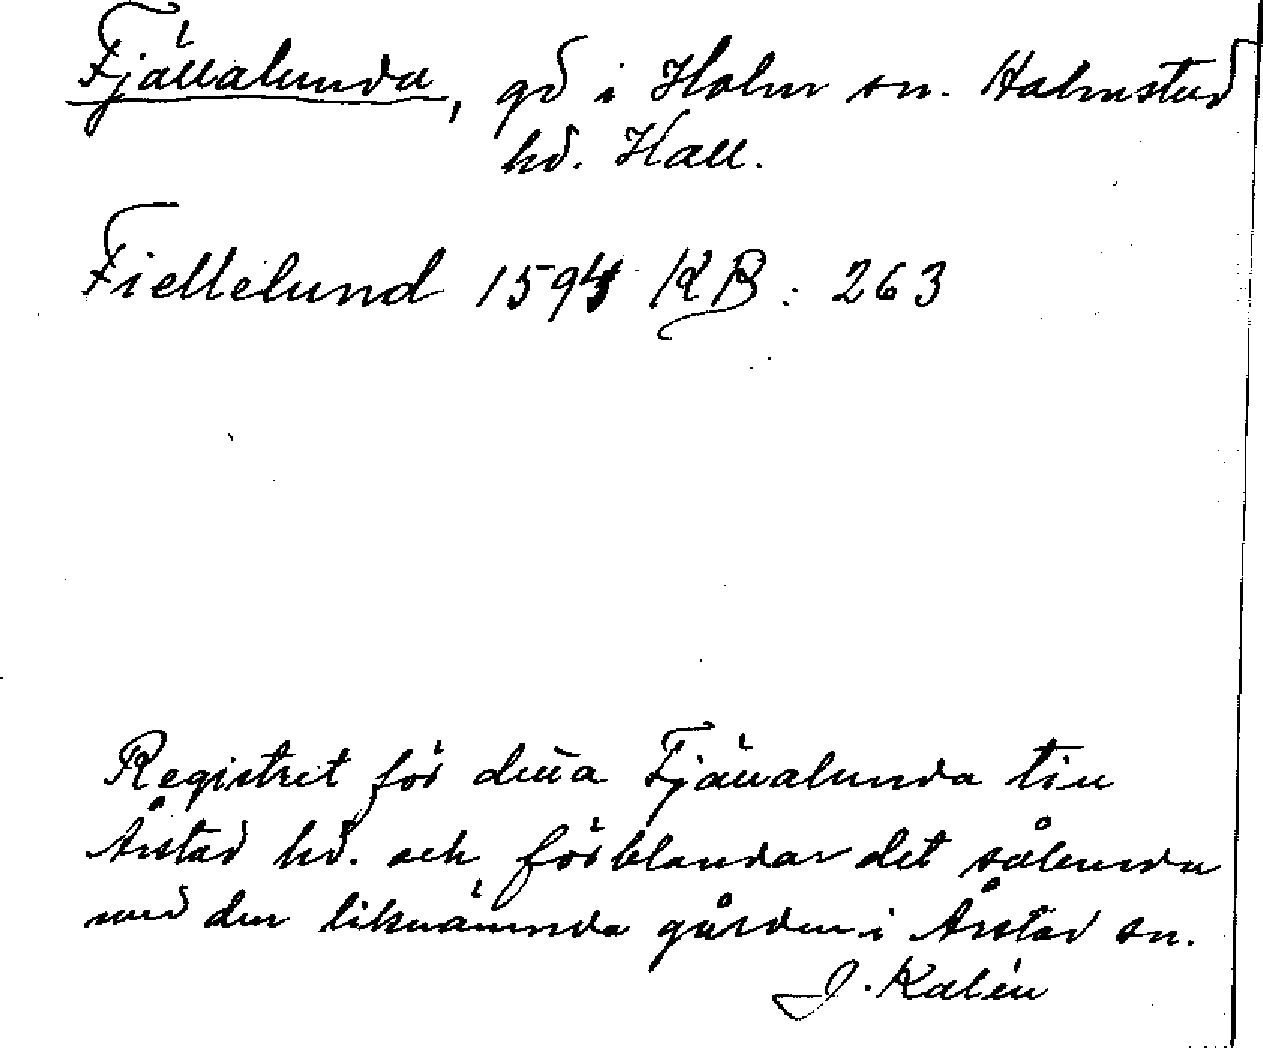 Fjällalunda, gd i Holm sn. Halmstad
hd. Hall.
Fiellelund 1594 KB: 263
Registret för denna Fjällalunda till
Årstad hd. och förblandar det sålunda
med den liknämnda gården i Årstad sn.
J. Kalén